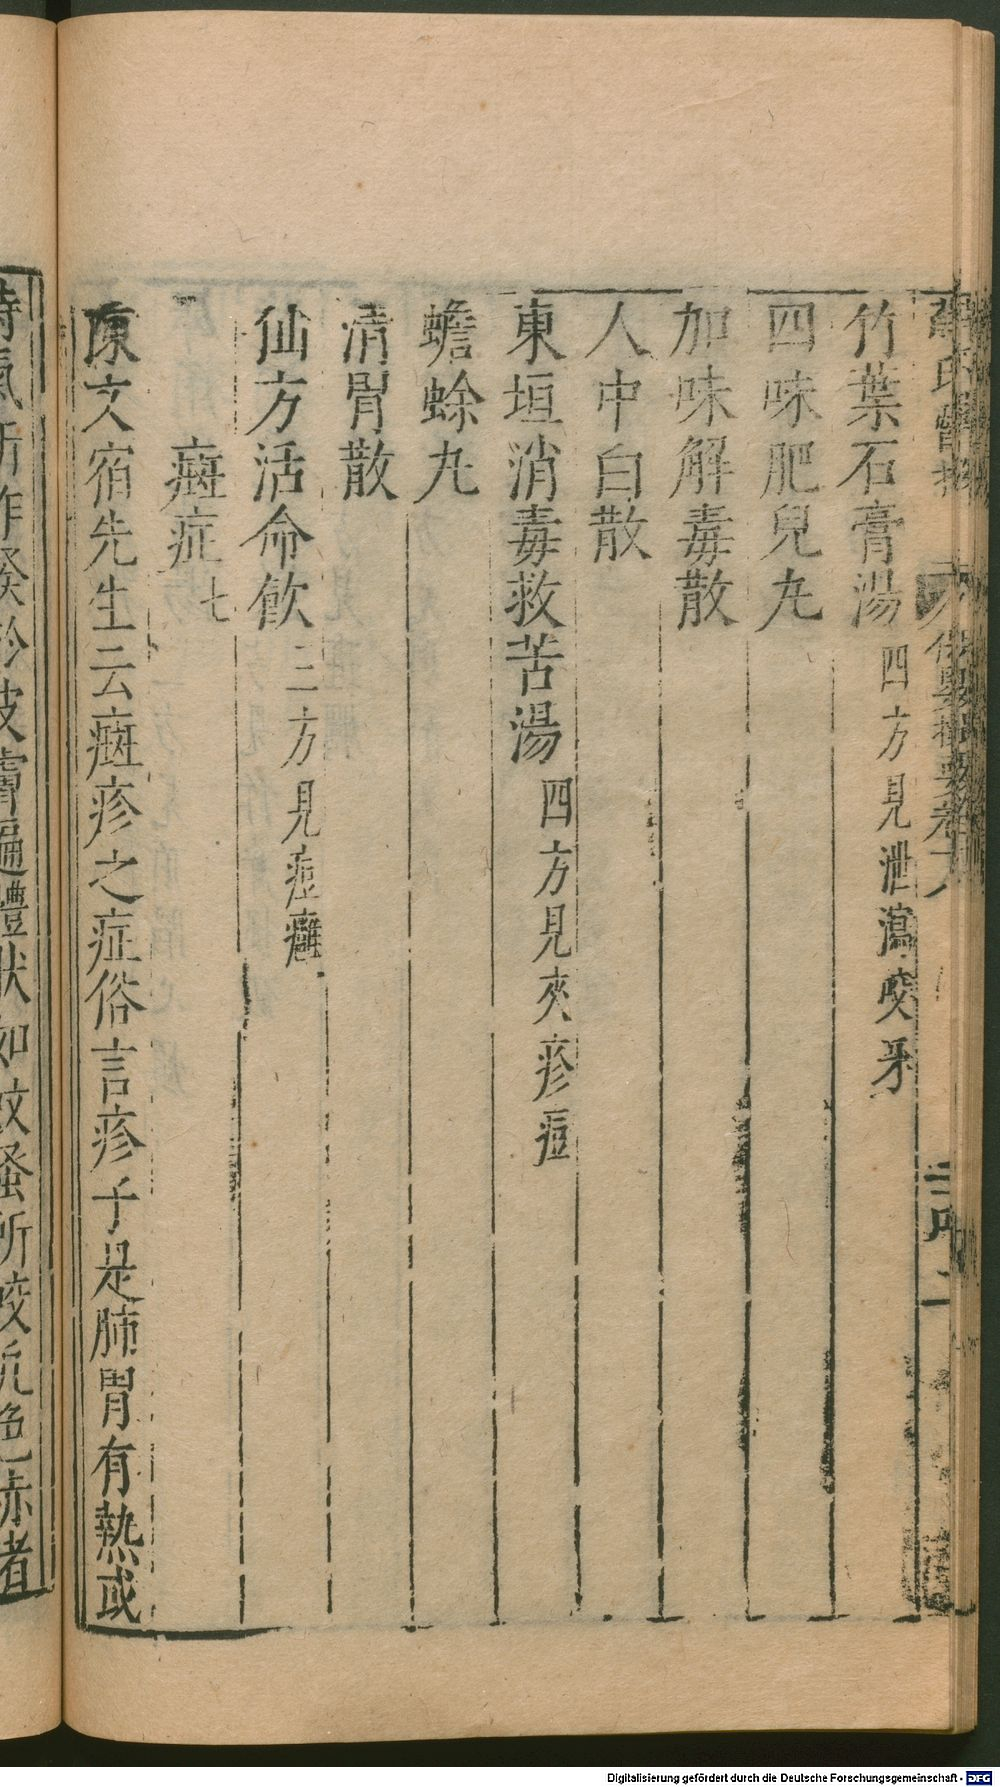 竹葉石膏湯 四方見泄瀉咬牙
四味肥兒丸
加味解毒散
人中白散
東垣消毒救苦湯 四方見夾疹痘
蟾蜍丸
清胃散
仙方活命飲 三方見痘癰
癍症 七
陳文宿先生云癍疹之症俗言疹子是肺胃有熱或
時氣所作發於皮膚遍體狀如蚊蚤所咬
赤者
Digitalisierung gefördert durch die Deutsche Forschungsgemeinschaft - DFG